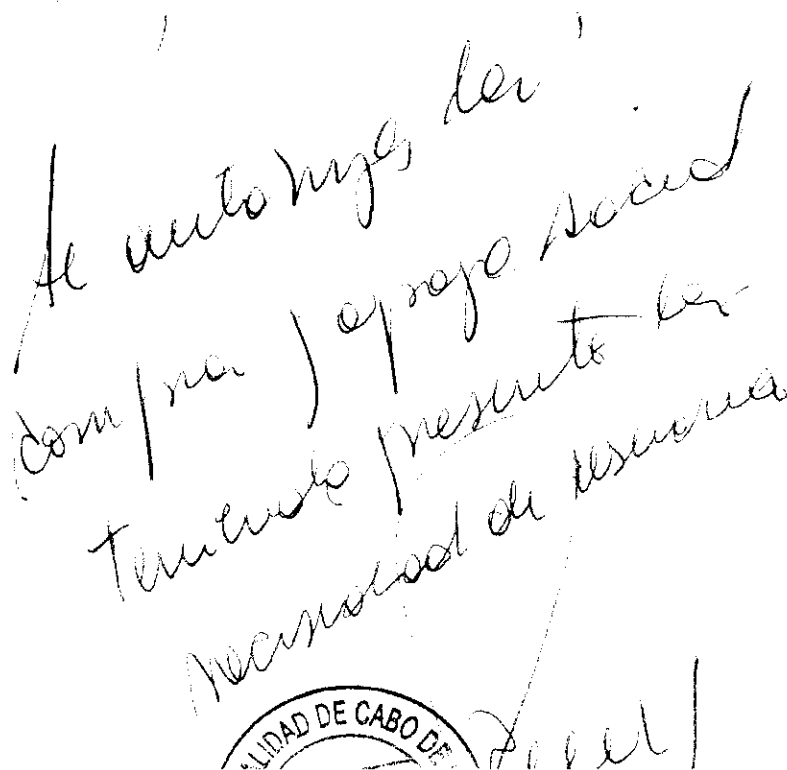 Se autoriza la
compra / apoyo social
teniendo presente la
necesidad de
LIDAD DE CABO DE